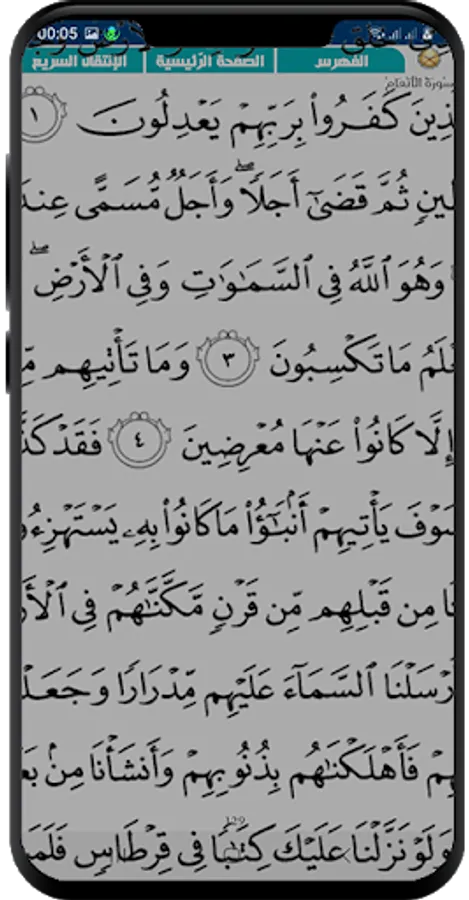 00:05
الفهرس الصفحة الرئيسية الإنتقال السريع
سورة الأنعام
كَفَرُوا۟ بِرَبِّهِمْ يَعْدِلُونَ ١
ثُمَّ قَضَىٰٓ أَجَلًۭا ۖ وَأَجَلٌۭ مُّسَمًّى
وَهُوَ ٱللَّهُ فِى ٱلسَّمَـٰوَٰتِ وَفِى ٱلْأَرْضِ ۖ
مَا تَكْسِبُونَ ٣ وَمَا تَأْتِيهِم
إِلَّا كَانُوا۟ عَنْهَا مُعْرِضِينَ ٤ فَقَدْ
يَأْتِيهِمْ أَنۢبَـٰٓؤُا۟ مَا كَانُوا۟ بِهِۦ
مِن قَبْلِهِم مِّن قَرْنٍۢ مَّكَّنَّـٰهُمْ فِى
ٱلسَّمَآءَ عَلَيْهِم مِّدْرَارًۭا
فَأَهْلَكْنَـٰهُم بِذُنُوبِهِمْ وَأَنشَأْنَا مِنۢ
129
وَلَوْ نَزَّلْنَا عَلَيْكَ كِتَـٰبًۭا فِى قِرْطَاسٍۢ